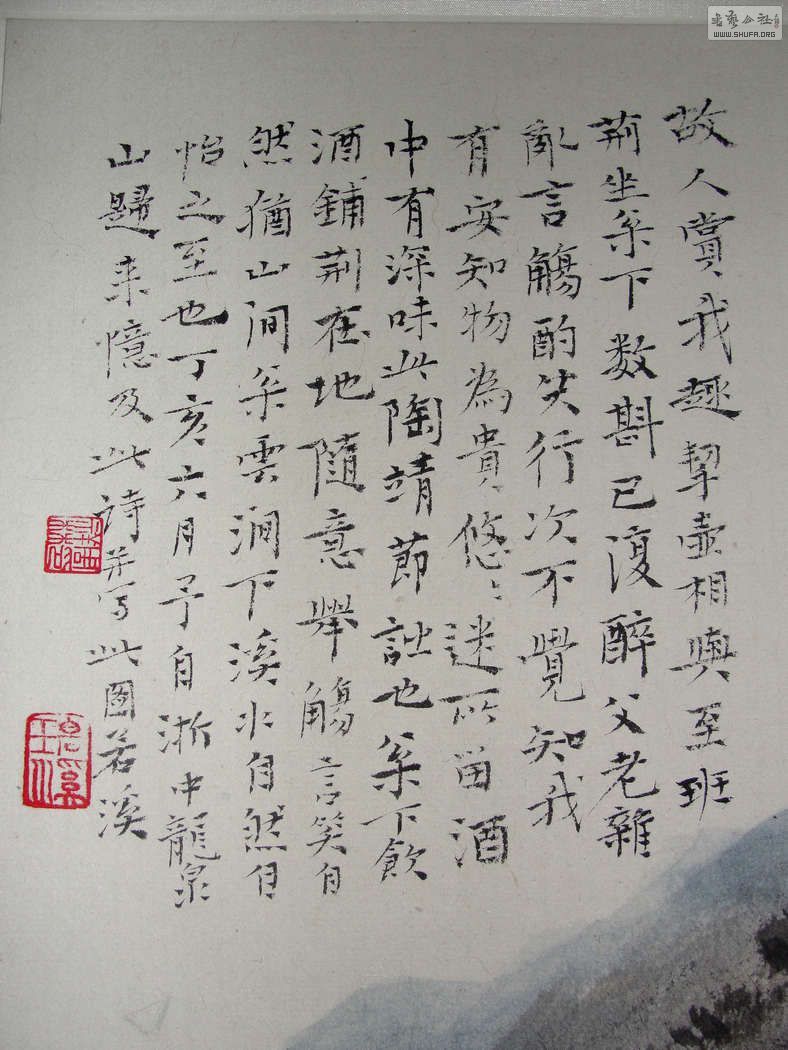 故人賞我趣挈壺相與至班
荆坐枀下数斟已復醉父老雜
亂言觴酌失行次不覺知我
有安知物為貴悠〻迷所留酒
中有深味此陶靖節詩也枀下飲
酒鋪荆在地隨意舉觴言笑自
然猶山间枀雲澗下溪水自然自
怡之至也丁亥六月予自浙中龍泉
山歸来憶及此詩并写此圖若溪
书艺公社
WWW.SHUFA.ORG